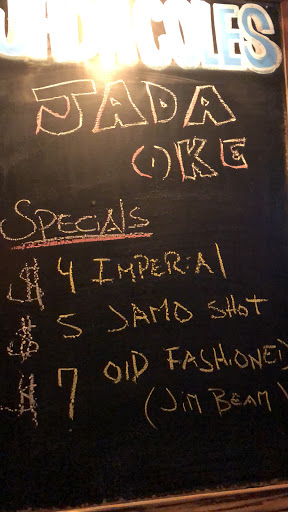 JADA
OKE
SPECIALS
$4 IMPERIAL
$5 JAMO SHOT
$7 OLD FASHIONED
(JIM BEAM)